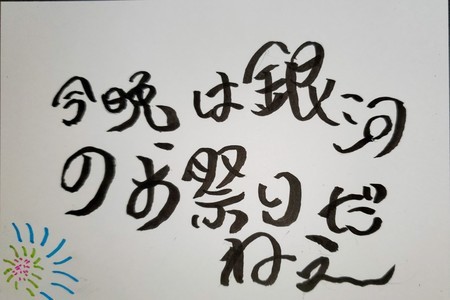 今晩は銀河
のお祭りだ
ねえ